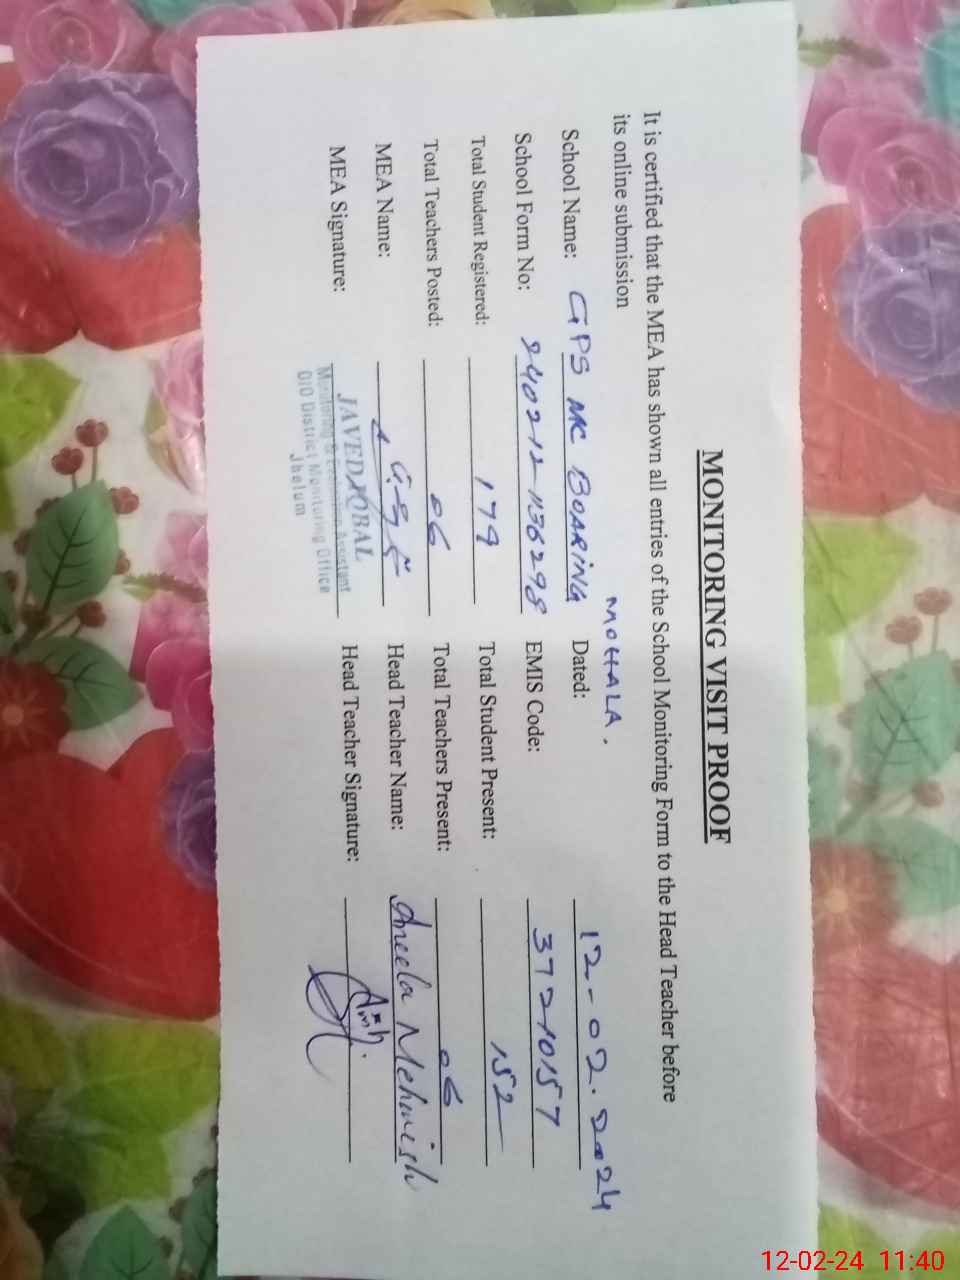 MONITORING VISIT PROOF
It is certified that the MEA has shown all entries of the School Monitoring Form to the Head Teacher before
its online submission
MOHALA.
School Name: GPS MC BOARING Dated: 12-02-2024
School Form No: 240212-1136298 EMIS Code: 37210157
Total Student Registered: 179 Total Student Present: 152
Total Teachers Posted: 06 Total Teachers Present: 06
MEA Name: Head Teacher Name: Aneela Mehwish
MEA Signature: Head Teacher Signature:
JAVED IQBAL
Monitoring & Evaluation Assistant
O/O District Monitoring Office
Jhelum
12-02-24 11:40